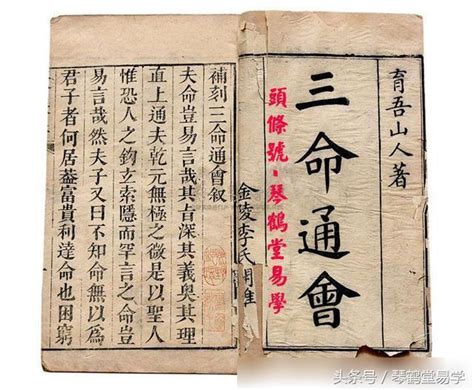 育吾山人著
三命通會
頭條號·琴鶴堂易學
金陵李氏
補刻三命通會叙
夫命豈易言哉其旨深其義奥其理
直上通夫乾元無極之微是以聖人
惟恐人之鉤玄索隱而罕言之命豈
易言哉然夫子又曰不知命無以爲
君子者何居葢富貴利達命也困窮
头条号 / 琴鹤堂易学